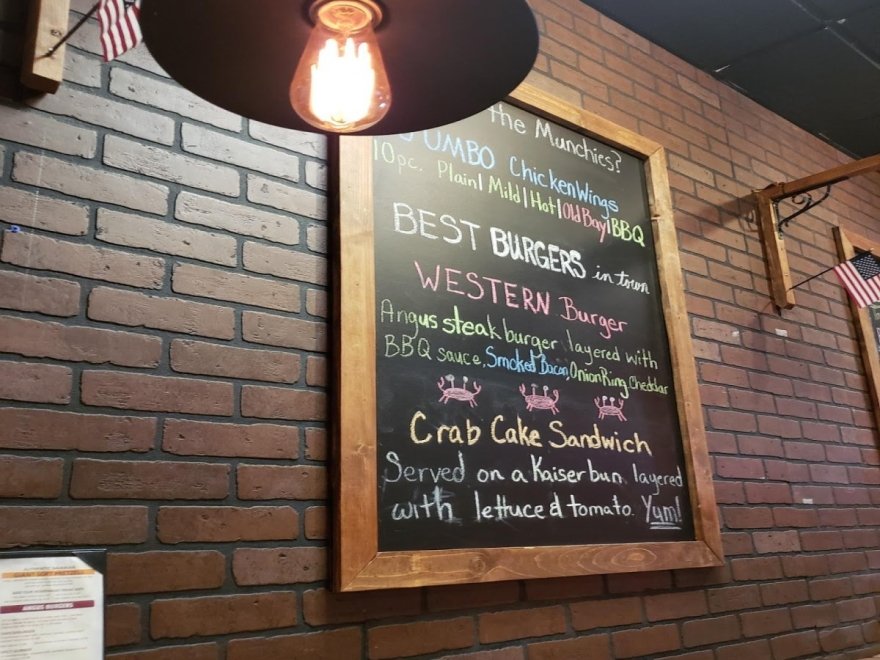 the Munchies?
JUMBO Chicken Wings
10pc. Plain | Mild | Hot | Old Bay | BBQ
BEST BURGERS in town
WESTERN Burger
Angus steak burger layered with
BBQ sauce, Smoked Bacon, Onion Ring, Cheddar
Crab Cake Sandwich
Served on a Kaiser bun layered
with lettuce & tomato. Yum!
ANGUS BURGERS